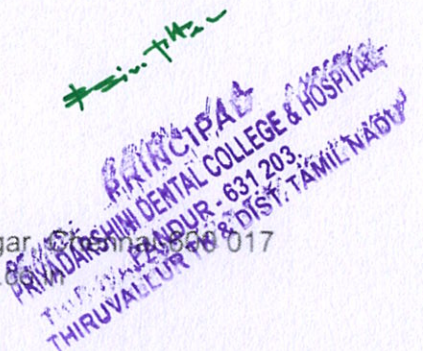 PRINCIPAL
PRIYADARSHINI DENTAL COLLEGE & HOSPITAL
PANDUR - 631 203.
THIRUVALLUR TK & DIST. TAMIL NADU
gar, Chennai-600 017